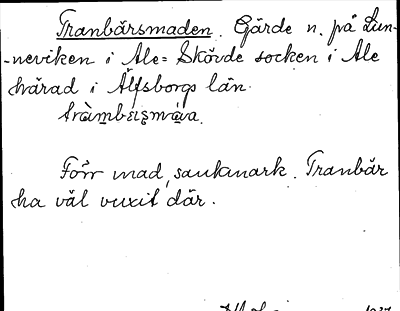 Tranbärsmaden. Gärde n. på Lun-
-neviken i Ale=Skövde socken i Ale
härad i Älfsborgs län.
Förr mad, sankmark. Tranbär
ha väl vuxit där.